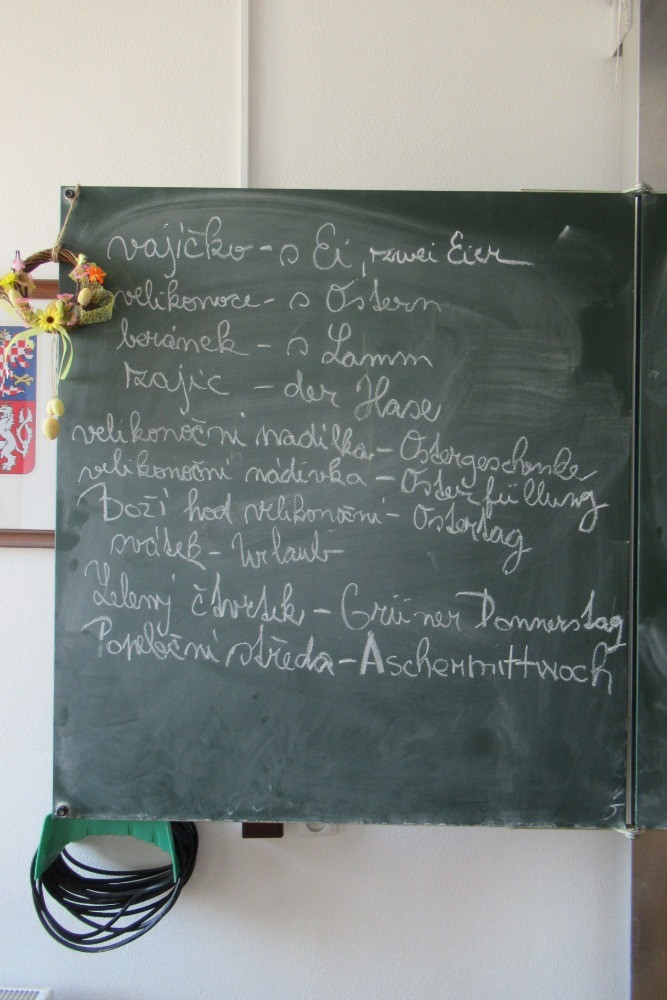 vajíčko - s Ei, zwei Eier
velikonoce - s Ostern
beránek - s Lamm
zajíc - der Hase
velikonoční nadílka - Ostergeschenke
velikonoční nádivka - Osterfüllung
Boží hod velikonoční - Ostertag
svátek - Urlaub
Zelený čtvrtek - Grüner Donnerstag
Popeloční středa - Aschermittwoch